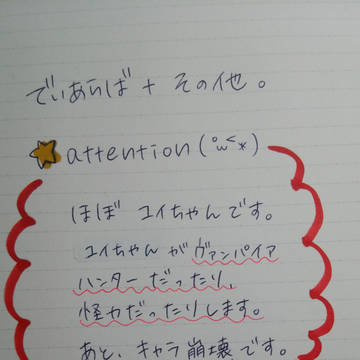 でぃあらば + その他。
attention (°ω<*)
ほぼ ユイちゃんです。
ユイちゃんがヴァンパイア
ハンターだったり、
怪力だったりします。
あと、キャラ崩壊です。